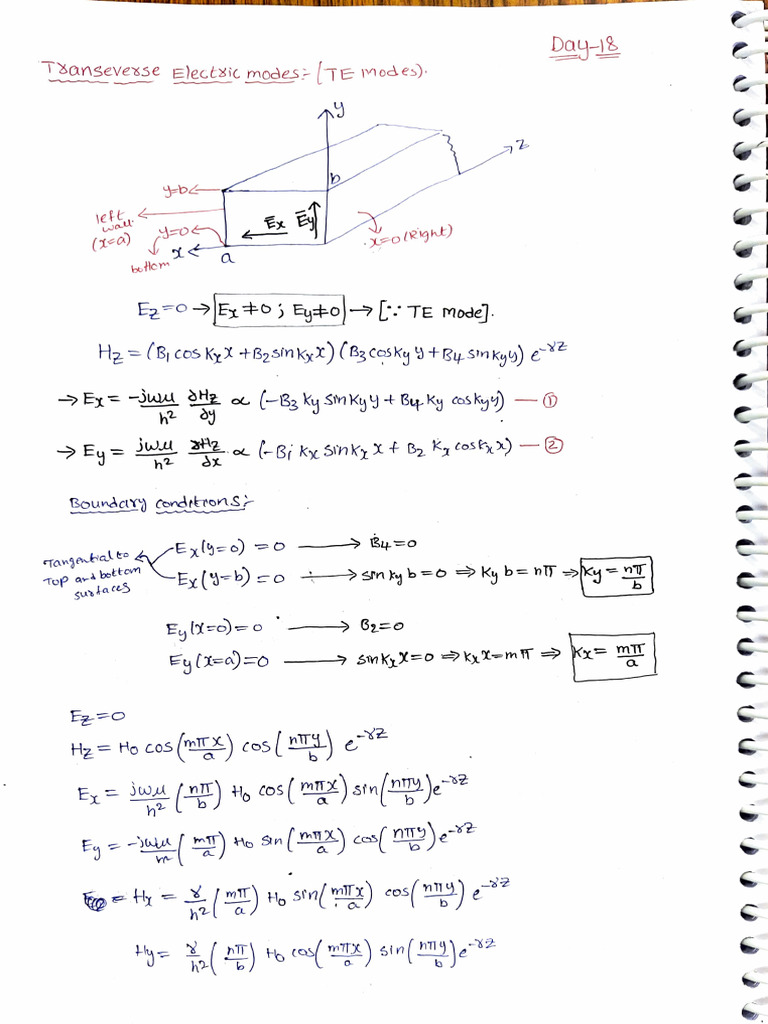 Day-18
Transeverse Electric modes:- (TE Modes).
y
z
b
y=b
left wall (x=a)
y=0
Ēx Ēy
x=0 (Right)
x
bottom
a
Ez=0 → Ex≠0 ; Ey≠0 → [∵ TE mode].
Hz = (B1 cos Kx x + B2 sin Kx x) (B3 cos Ky y + B4 sin Ky y) e^-γz
→ Ex = -jωμ/h² ∂Hz/∂y ∝ (-B3 Ky sin Ky y + B4 Ky cos Ky y) — ①
→ Ey = jωμ/h² ∂Hz/∂x ∝ (-B1 Kx sin Kx x + B2 Kx cos Kx x) — ②
Boundary conditions:-
Tangential to Top and bottom surfaces
Ex(y=0) = 0 → B4=0
Ex(y=b) = 0 → sin Ky b = 0 ⇒ Ky b = nπ ⇒ Ky = nπ/b
Ey(x=0) = 0 → B2=0
Ey(x=a) = 0 → sin Kx X = 0 ⇒ Kx X = mπ ⇒ Kx = mπ/a
Ez=0
Hz = H0 cos(mπx/a) cos(nπy/b) e^-γz
Ex = jωμ/h² (nπ/b) H0 cos(mπx/a) sin(nπy/b) e^-γz
Ey = -jωμ/m (mπ/a) H0 sin(mπx/a) cos(nπy/b) e^-γz
= Hx = γ/h² (mπ/a) H0 sin(mπx/a) cos(nπy/b) e^-γz
Hy = γ/h² (nπ/b) H0 cos(mπx/a) sin(nπy/b) e^-γz